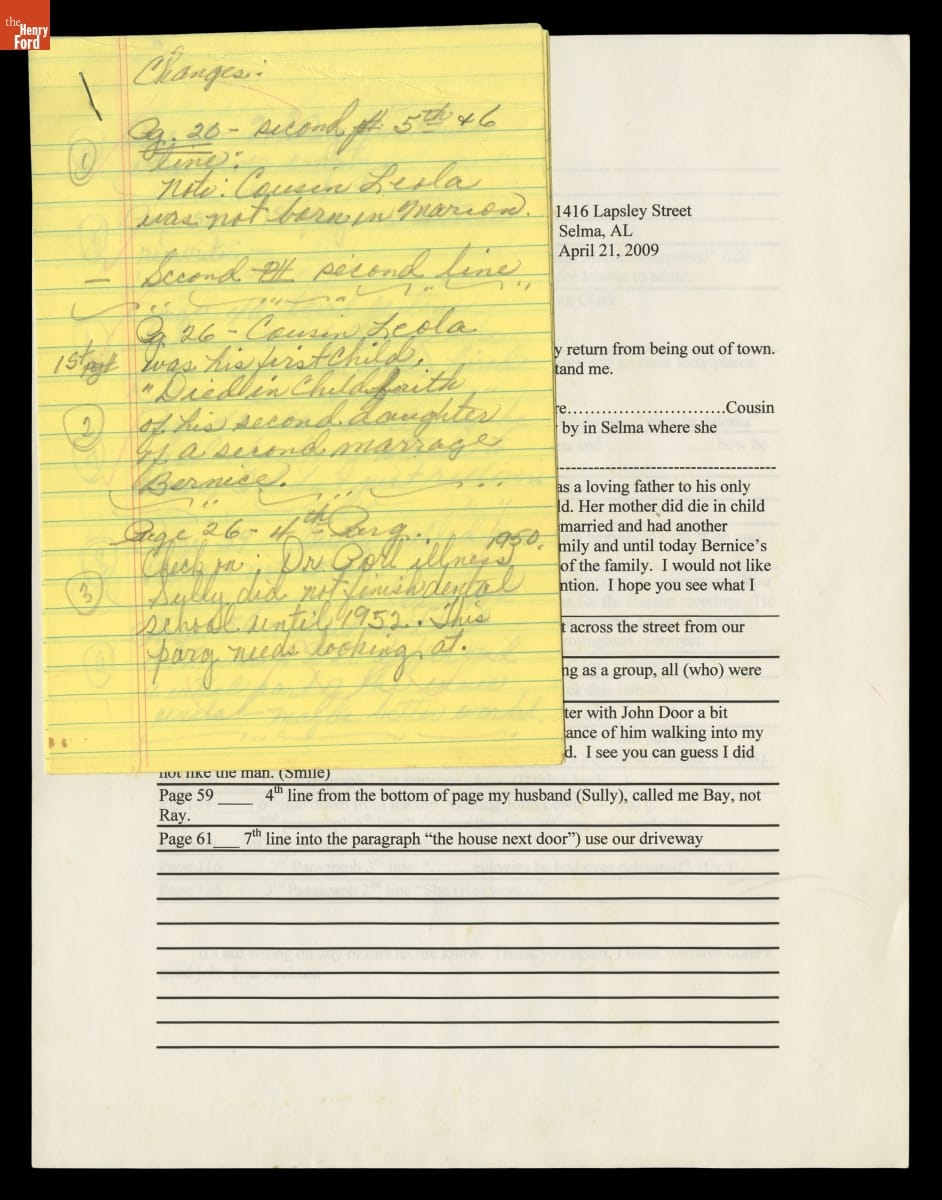 the
Henry
Ford
Changes:
① Pg. 26 - second 5th & 6
line:
Note: Cousin Leola
was not born in Marion.
— Second second line
Pg 26 - Cousin Leola
1st pg# was his first child.
"Died in Childbirth
② of his second daughter
of a second marrage
Bernice.
Page 26 - 4th Parg.
Check on: Dr illness 1950.
③ Sully did not finish dental
school until 1952. This
parg needs looking at.
1416 Lapsley Street
Selma, AL
April 21, 2009
y return from being out of town.
tand me.
re………………………..Cousin
by in Selma where she
as a loving father to his only
ld. Her mother did die in child
married and had another
mily and until today Bernice's
of the family. I would not like
ntion. I hope you see what I
t across the street from our
ng as a group, all (who) were
ter with John Door a bit
ance of him walking into my
d. I see you can guess I did
not like the man. (Smile)
Page 59 ____ 4th line from the bottom of page my husband (Sully), called me Bay, not
Ray.
Page 61___ 7th line into the paragraph "the house next door") use our driveway